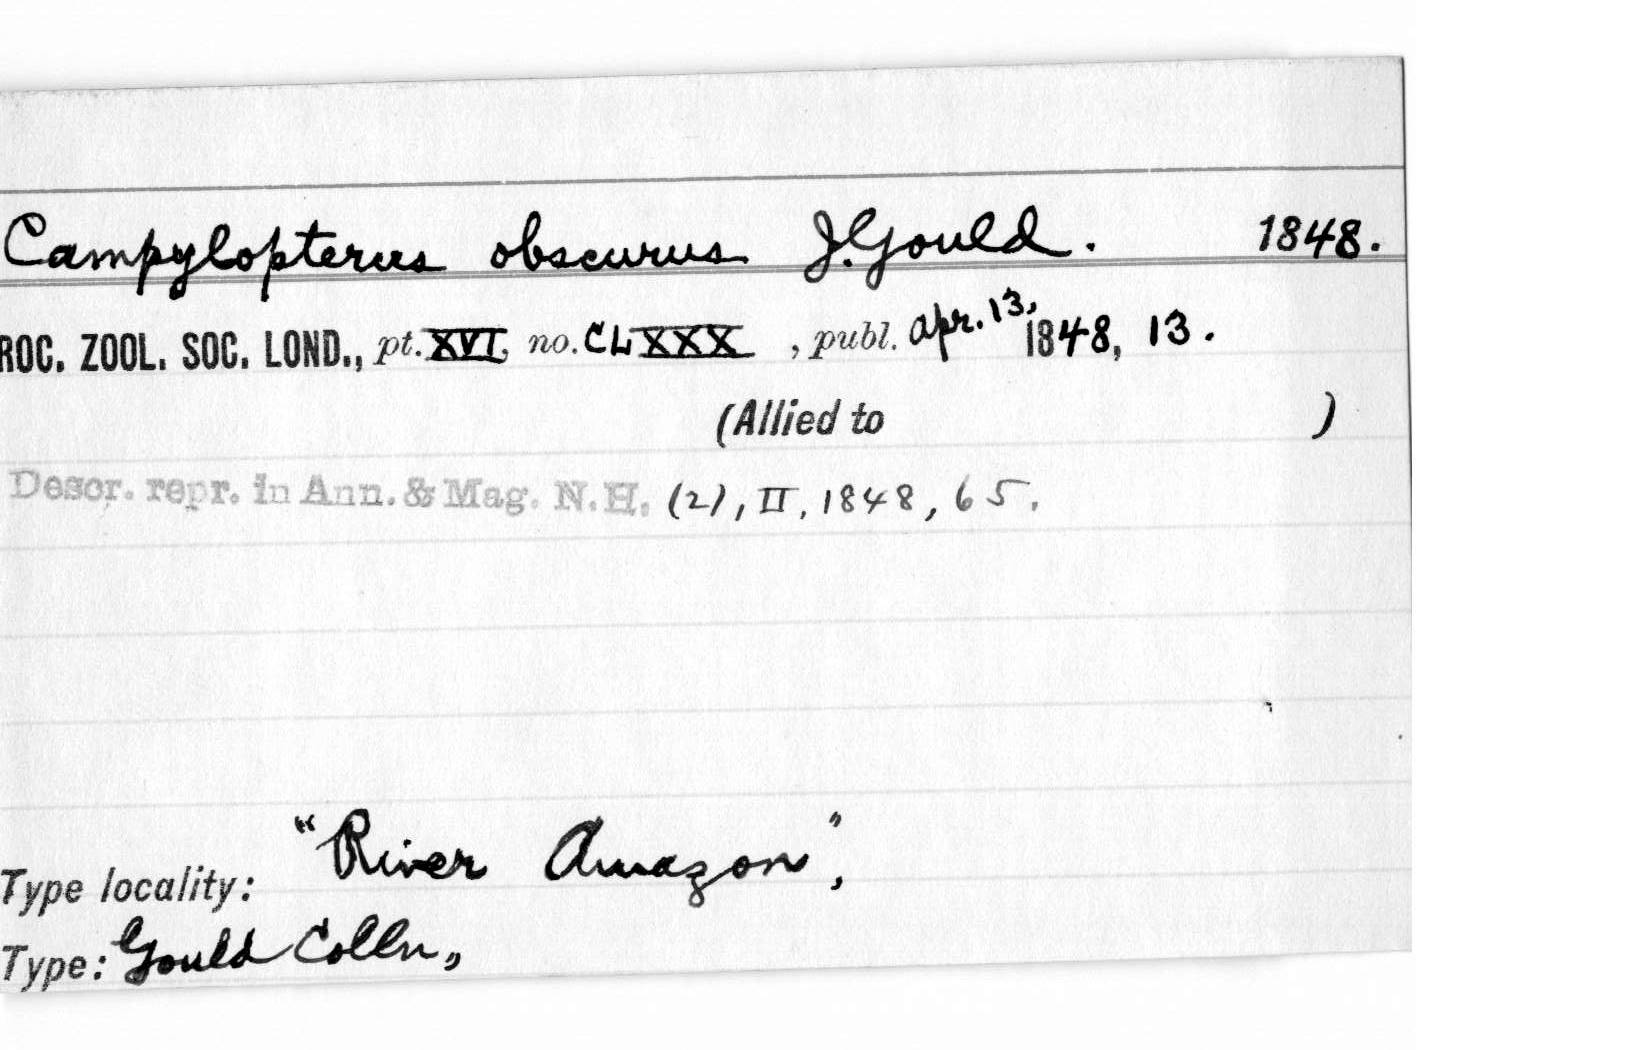 Campylopterus obscurus J. Gould. 1848.
ROC. ZOOL. SOC. LOND., pt. XVI, no. CLXXX , publ. Apr. 13, 1848, 13.
(Allied to )
Descr. repr. in Ann. & Mag. N.H. (2), II, 1848, 65.
Type locality: "River Amazon",
Type: Gould Colln,,